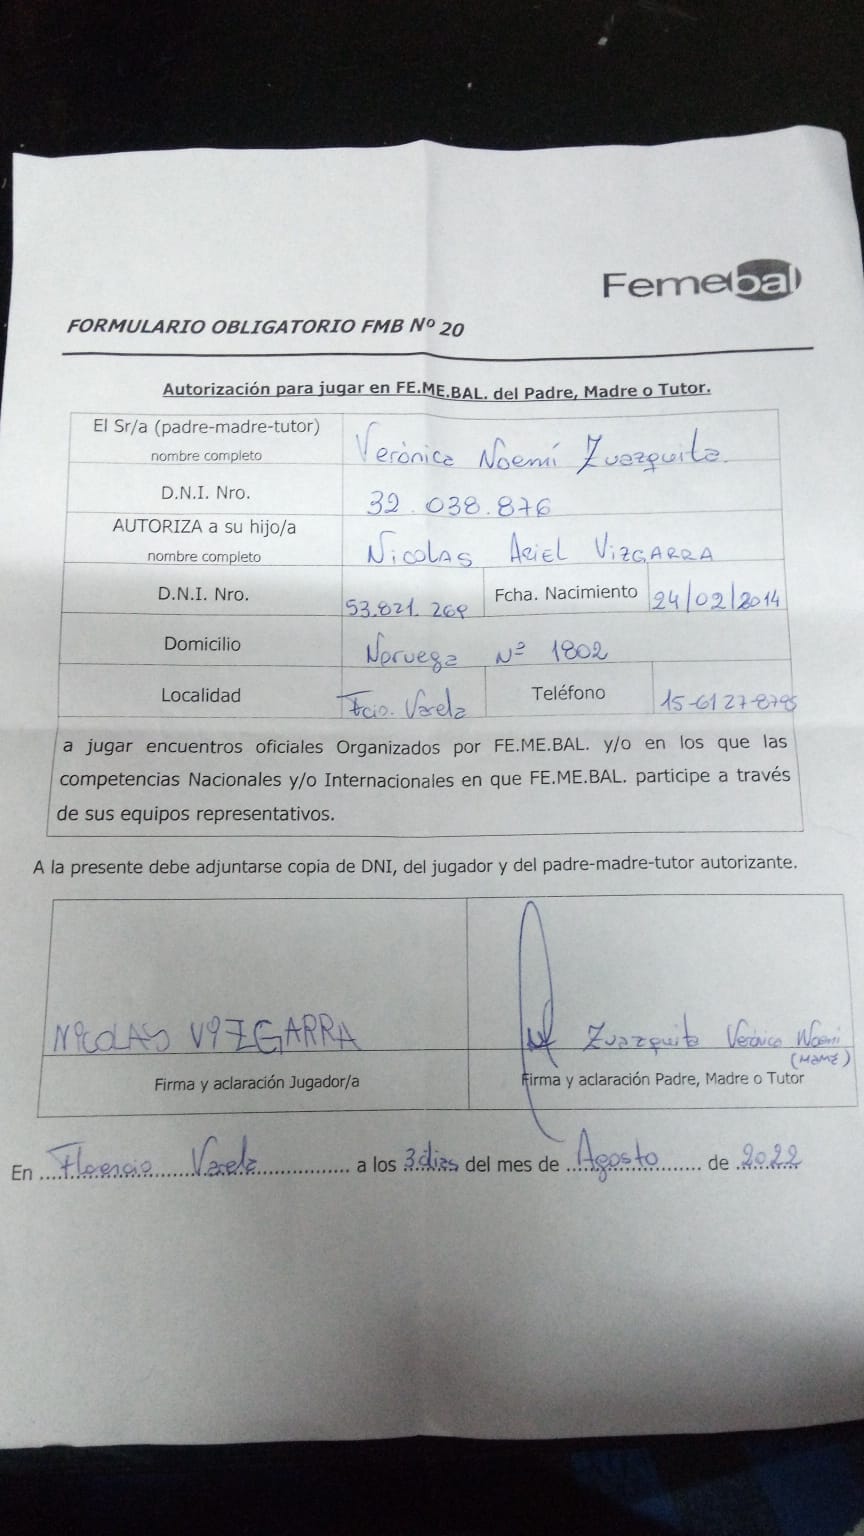 Femebal
FORMULARIO OBLIGATORIO FMB Nº 20
Autorización para jugar en FE.ME.BAL. del Padre, Madre o Tutor.
El Sr/a (padre-madre-tutor)
nombre completo
Verónica Noemí Zuazquita
D.N.I. Nro.
32.038.876
AUTORIZA a su hijo/a
nombre completo
Nicolas Ariel VizGARRA
D.N.I. Nro.
53.821.269
Fcha. Nacimiento
24/02/2014
Domicilio
Noruega Nº 1802
Localidad
Fcio. Varela
Teléfono
15-6127-8795
a jugar encuentros oficiales Organizados por FE.ME.BAL. y/o en los que las
competencias Nacionales y/o Internacionales en que FE.ME.BAL. participe a través
de sus equipos representativos.
A la presente debe adjuntarse copia de DNI, del jugador y del padre-madre-tutor autorizante.
NiCOLAS ViZGARRA
Zuazquita Verónica Noemí
(MAMÁ)
Firma y aclaración Jugador/a
Firma y aclaración Padre, Madre o Tutor
En Florencio Varela a los 3 días del mes de Agosto de 2022